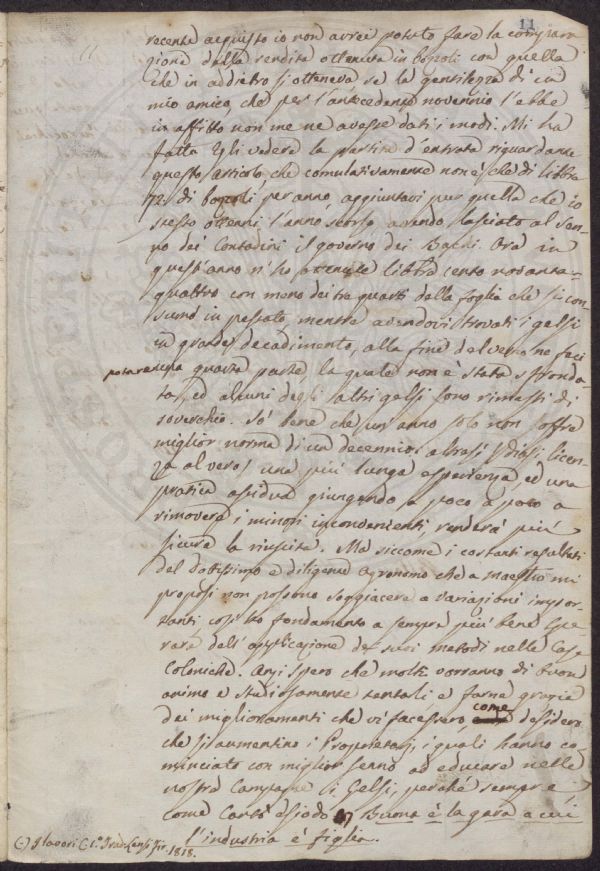 11
recente acquisto io non avrei potuto fare la compara
zione dalla rendita ottenuta in bozzoli con quella
che in addietro si otteneva se la gentilezza di un
mio amico, che per l'antecedente novennio l'ebbe
in affitto non me ne avesse dati i modi. Mi ha
fatto Egli vedere la partita d'entrata riguardante
questo articolo che comulativamente non è che di libbre
72 di bozzoli per anno, aggiuntavi pur quella che io
stesso ottenni l'anno scorso avendo lasciato al Sen
no dei Contadini il governo dei Bachi. Ora in
quest'anno n'ho ottenute libbre cento novanta-
quattro con meno dei tre quarti della foglia che si con
sumò in passato, mentre avendovi trovati i gelsi
in grande decadimento, alla fine del verno ne feci
potare una quarta parte la quale non è stata sfronda
ta, ed alcuni degli altri gelsi sono rimasti di
soverchio. Sò bene che un anno solo non offre
miglior norma di un decennio; altresì (diasi licen
za al vero) una più lunga esperienza ed una
pratica assidua giungendo a poco a poco a
rimovere i minori inconvenienti, renderà più
sicura la riuscita. Ma siccome i costanti resultati
del dottissimo e diligente Agronomo che a maestro mi
proposi non possono soggiacere a variazioni impor
tanti così ho fondamento a sempre più bene spe
rare dell'applicazione de suoi metodi nelle Case
Coloniche. Anzi spero che molti vorranno di buon
animo e studiosamente tentali e farne grazia
dei miglioramenti che vi facessero, come desidero
che si aumentino i Proprietarj, i quali hanno co
minciato con miglior senno ad educare nelle
nostre Campagne i Gelsi, perché sempre è
come cantò Esiodo (·) Buona è la gara a cui
l'industria è figlia.
(·) I lavori C. 1.° Trad. Lanzi Fir. 1818.